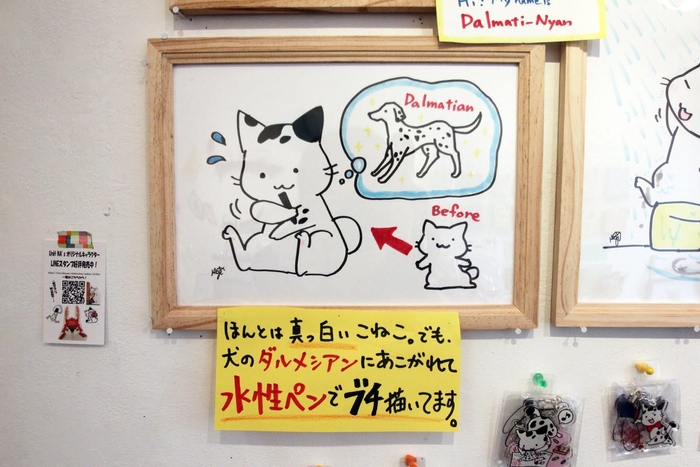 Hi! My name is
Dalmati-Nyan
Dalmatian
Before
LINEスタンプ好評発売中！
ほんとは真っ白いこねこ。でも、
犬のダルメシアンにあこがれて
水性ペンでブチ描いてます。